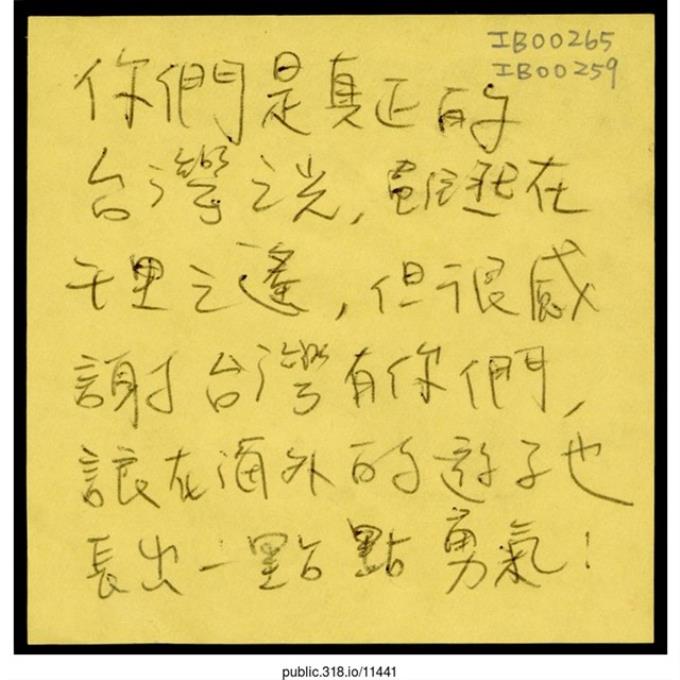 IB00265
IB00259
你們是真正的
台灣之光,雖然在
千里之遙,但很感
謝台灣有你們,
讓在海外的遊子也
長出一點點勇氣!
public.318.io/11441